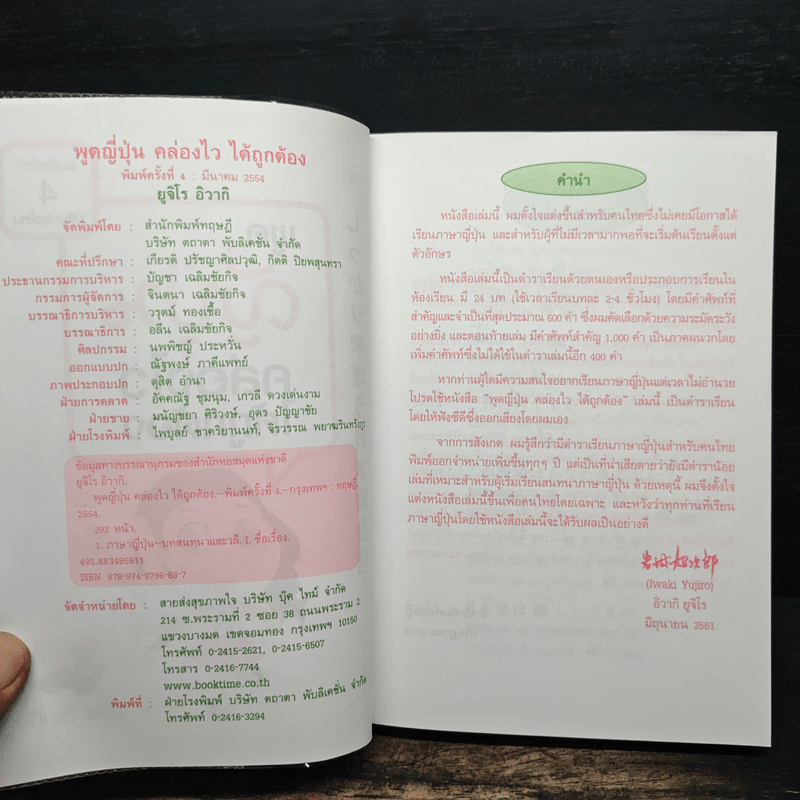 พูดญี่ปุ่น คล่องไว ได้ถูกต้อง
พิมพ์ครั้งที่ 4 : มีนาคม 2554
ยูจิโร อิวากิ
จัดพิมพ์โดย : สำนักพิมพ์ทฤษฎี
บริษัท ตถาตา พับลิเคชั่น จำกัด
คณะที่ปรึกษา : เกียรติ ปรัชญาศิลปวุฒิ, กิตติ ปิยพสุนทรา
ประธานกรรมการบริหาร : บัญชา เฉลิมชัยกิจ
กรรมการผู้จัดการ : จินตนา เฉลิมชัยกิจ
บรรณาธิการบริหาร : วรุตม์ ทองเชื้อ
บรรณาธิการ : อลีน เฉลิมชัยกิจ
ศิลปกรรม : นพพิชญ์ ประหวั่น
ออกแบบปก : ณัฐพงษ์ ภาคีแพทย์
ภาพประกอบปก : ดุสิต อำนา
ฝ่ายการตลาด : อัคคณัฐ ชุมนุม, เกวลี ดวงเด่นงาม
ฝ่ายขาย : มนัญชยา ศิริวงษ์, อุดร ปัญญาชัย
ฝ่ายโรงพิมพ์ : ไพบูลย์ ชาคริยานนท์, จิรวรรณ พยาฆรินทรังกูร
ข้อมูลทางบรรณานุกรมของสำนักหอสมุดแห่งชาติ
ยูจิโร อิวากิ.
พูดญี่ปุ่น คล่องไว ได้ถูกต้อง.--พิมพ์ครั้งที่ 4.--กรุงเทพฯ : ทฤษฎี
2554.
392 หน้า.
1. ภาษาญี่ปุ่น--บทสนทนาและวลี. I. ชื่อเรื่อง.
495.683495911
ISBN 978-974-9796-88-7
จัดจำหน่ายโดย : สายส่งสุขภาพใจ บริษัท บุ๊ค ไทม์ จำกัด
214 ซ.พระรามที่ 2 ซอย 38 ถนนพระราม 2
แขวงบางมด เขตจอมทอง กรุงเทพฯ 10150
โทรศัพท์ 0-2415-2621, 0-2415-6507
โทรสาร 0-2416-7744
www.booktime.co.th
พิมพ์ที่ : ฝ่ายโรงพิมพ์ บริษัท ตถาตา พับลิเคชั่น จำกัด
โทรศัพท์ 0-2416-3294
คำนำ
หนังสือเล่มนี้ ผมตั้งใจแต่งขึ้นสำหรับคนไทยซึ่งไม่เคยมีโอกาสได้
เรียนภาษาญี่ปุ่น และสำหรับผู้ที่ไม่มีเวลามากพอที่จะเริ่มต้นเรียนตั้งแต่
ตัวอักษร
หนังสือเล่มนี้เป็นตำราเรียนด้วยตนเองหรือประกอบการเรียนใน
ห้องเรียน มี 24 บท (ใช้เวลาเรียนบทละ 2-4 ชั่วโมง) โดยมีคำศัพท์ที่
สำคัญและจำเป็นที่สุดประมาณ 600 คำ ซึ่งผมคัดเลือกด้วยความระมัดระวัง
อย่างยิ่ง และตอนท้ายเล่ม มีคำศัพท์สำคัญ 1,000 คำ เป็นภาคผนวกโดย
เพิ่มคำศัพท์ซึ่งไม่ได้ใช้ในตำราเล่มนี้อีก 400 คำ
หากท่านผู้ใดมีความสนใจอยากเรียนภาษาญี่ปุ่นแต่เวลาไม่อำนวย
โปรดใช้หนังสือ "พูดญี่ปุ่น คล่องไว ได้ถูกต้อง" เล่มนี้ เป็นตำราเรียน
โดยให้ฟังซีดีซึ่งออกเสียงโดยผมเอง
จากการสังเกต ผมรู้สึกว่ามีตำราเรียนภาษาญี่ปุ่นสำหรับคนไทย
พิมพ์ออกจำหน่ายเพิ่มขึ้นทุกๆ ปี แต่เป็นที่น่าเสียดายว่ายังมีตำราน้อย
เล่มที่เหมาะสำหรับผู้เริ่มเรียนสนทนาภาษาญี่ปุ่น ด้วยเหตุนี้ ผมจึงตั้งใจ
แต่งหนังสือเล่มนี้ขึ้นเพื่อคนไทยโดยเฉพาะ และหวังว่าทุกท่านที่เรียน
ภาษาญี่ปุ่นโดยใช้หนังสือเล่มนี้จะได้รับผลเป็นอย่างดี
岩城雄次郎
(Iwaki Yujiro)
อิวากิ ยูจิโร
มิถุนายน 2551